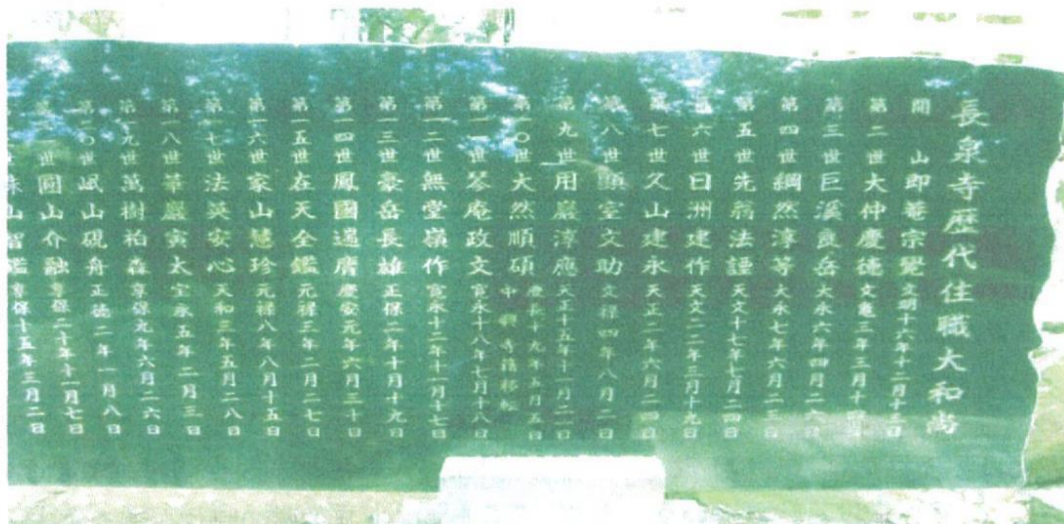 長泉寺歴代住職大和尚
開 山即菴宗覺文明十六年十二月十二日
第二世大仲慶徳文亀三年三月十四日
第三世巨溪良岳大永六年四月二六日
第四世綱然淳等大永七年六月二三日
第五世先翁法謹天文十七年七月二四日
六世日洲建作天文二二年三月十九日
第七世久山建永天正二年六月二四日
第八世顕室文助文禄四年八月二日
第九世用巖淳應天正十五年十一月二一日
第一〇世大然順碩慶長十九年五月五日
中興寺籍移転
第一一世琴庵政文寛永十八年七月十八日
第一二世無堂嶺作寛永十二年十一月十七日
第一三世豪岳長雄正保二年十月十九日
第一四世鳳國遍膺慶安元年六月三十日
第一五世在天全鑑元禄三年二月二七日
第一六世家山慧珍元禄八年八月十五日
第一七世法英安心天和三年五月二八日
第一八世華巖寅太宝永五年二月三日
第一九世萬樹柏森享保九年六月二六日
第二〇世岷山硯舟正徳二年一月八日
世圓山介融享保二十年十一月七日
世 山智鑑享保十五年三月二日